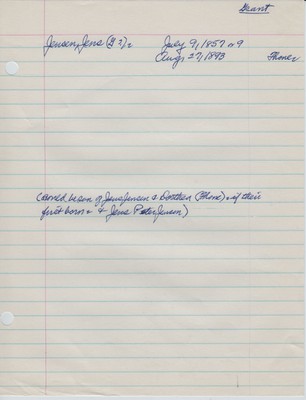 Grant
Jensen, Jens (G ?)2 July 9, 1857 or 9
Aug. 27, 1893 Thone
(Could be son of Jens Jensen & Dorthea (Thone) - if their
first born & Jens Peter Jensen)